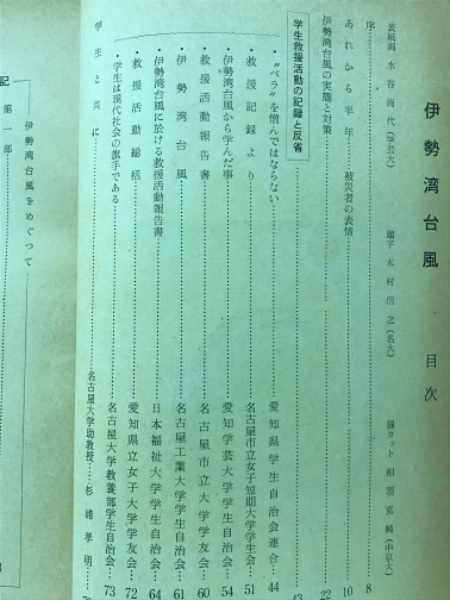 伊勢湾台風　目次
表紙画　水谷尚代（学芸大）　題字　木村信之（名大）　扉カット　相羽克純（中京大）
序……8
あれから半年　被災者の表情……10
伊勢湾台風の実態と対策……22
学生救援活動の記録と反省……43
・“ベラ”を憎んではならない……愛知県学生自治会連合……44
・救援記録より……名古屋市立女子短期大学学生会……51
・伊勢湾台風から学んだ事……愛知学芸大学学生自治会……54
・救援活動報告書……名古屋市立大学学友会……60
・伊勢湾台風……名古屋工業大学学生自治会……61
・伊勢湾台風に於ける救援活動報告書……日本福祉大学学生自治会……64
・救援活動総括……愛知県立女子大学学友会……72
・学生は現代社会の旗手である……名古屋大学教養部学生自治会……73
学生と共に……名古屋大学助教授……杉浦孝明
伊勢湾台風をめぐつて
記
第一部